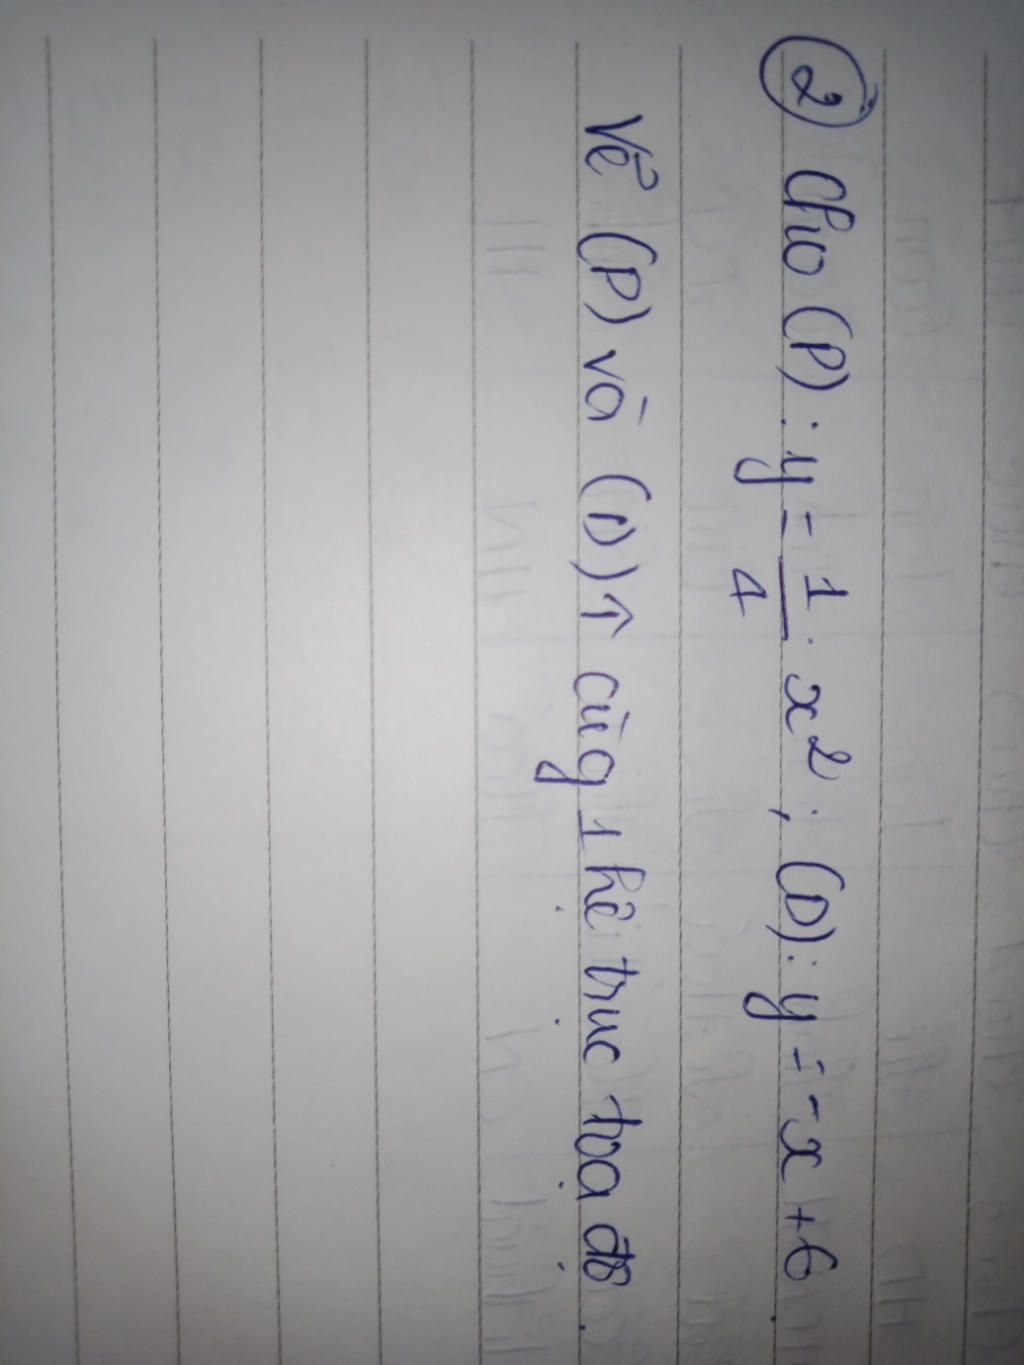 ② Cho (P): y = 1/4 . x²; (D): y = -x + 6
Vẽ (P) và (D) ↑ cùg 1 hệ trục toạ độ.